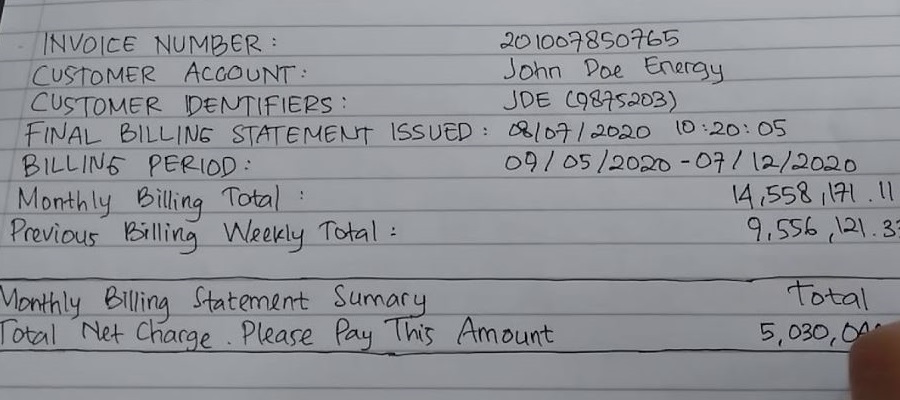 INVOICE NUMBER : 201007850765
CUSTOMER ACCOUNT : John Doe Energy
CUSTOMER IDENTIFIERS : JDE (9875203)
FINAL BILLING STATEMENT ISSUED : 08/07/2020 10:20:05
BILLING PERIOD : 09/05/2020 - 07/12/2020
Monthly Billing Total : 14,558,171.11
Previous Billing Weekly Total :
Monthly Billing Statement Sumary Total
Total Net Charge. Please Pay This Amount